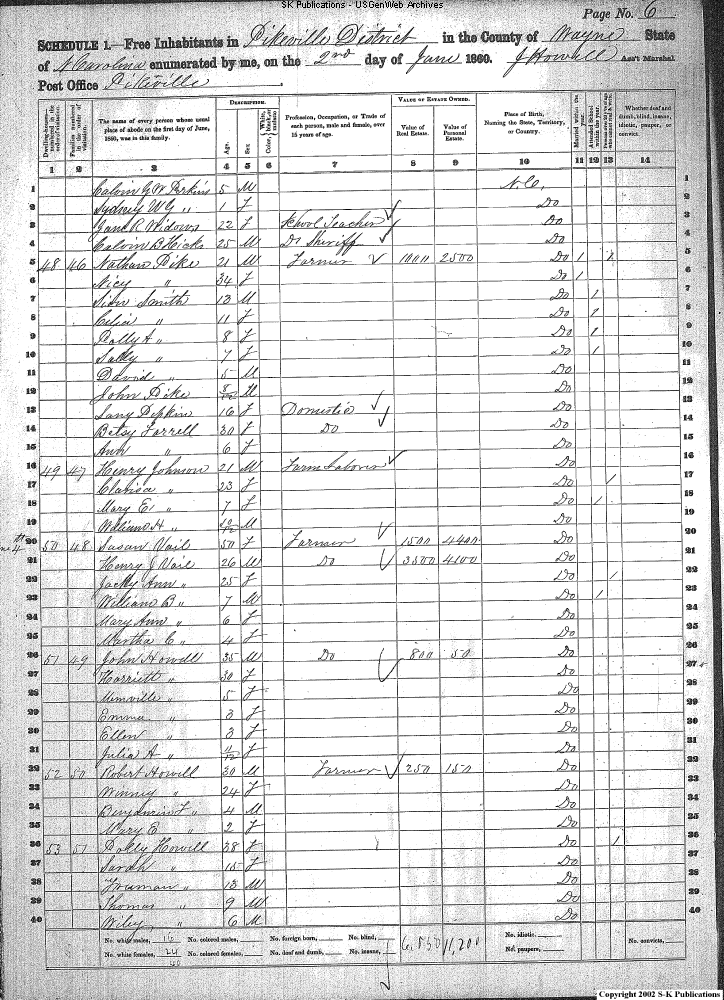 SK Publications - USGenWeb Archives
Page No. 6
SCHEDULE 1.—Free Inhabitants in Pikeville District in the County of Wayne State
of N Carolina enumerated by me, on the 2nd day of June 1860. J Howell Ass't Marshal
Post Office Pikeville
Dwelling-houses— numbered in the order of visitation.
Families numbered in the order of visitation.
The name of every person whose usual place of abode on the first day of June, 1860, was in this family.
DESCRIPTION.
Age.
Sex.
Color, White, black, or mulatto.
Profession, Occupation, or Trade of each person, male and female, over 15 years of age.
VALUE OF ESTATE OWNED.
Value of Real Estate.
Value of Personal Estate.
Place of Birth, Naming the State, Territory, or Country.
Married within the year.
Attended School within the year.
Persons over 20 years of age who cannot read & write.
Whether deaf and dumb, blind, insane, idiotic, pauper, or convict.
1 2 3 4 5 6 7 8 9 10 11 12 13 14
1 Calvin G W Perkins 5 M N.C. 1
2 Sydney W G " 1 f Do 2
3 Jane R Widows 22 f School Teacher Do 3
4 Calvin B Hicks 25 M D Sheriff Do 4
5 48 46 Nathan Pike 21 M Farmer 1000 2500 Do 1 5
6 Nicy " 34 f Do 1 6
7 Smith 13 M Do 1 7
8 Celia " 11 f Do 1 8
9 Polly A " 8 f Do 1 9
10 Sally " 7 f Do 1 10
11 David " 5 M Do 11
12 John Pike 8/12 M Do 12
13 Pipkin 16 f Domestic Do 13
14 Betsy Farrell 30 f Do Do 14
15 Ann " 6 f Do 15
16 49 47 Henry Johnson 21 M Farm Laborer Do 16
17 Clarisa " 23 f Do / 17
18 Mary E " 7 f Do 1 18
19 William H " 10/12 M Do 19
20 50 48 Susan Vail 50 f Farmer 1500 4400 Do 20
21 Henry J Vail 26 M Do 3500 4100 Do 21
22 Jacky Ann " 25 f Do / 22
23 William B " 7 M Do 1 23
24 Mary Ann " 6 f Do 24
25 Martha C " 4 f Do 25
26 51 49 John Howell 35 M Do 800 50 Do 26
27 Harriett " 30 f Do 27
28 " 5 f Do 28
29 Emma " 3 f Do 29
30 Ellen " 3 f Do 30
31 Julia A " 11/12 f Do 31
32 52 50 Robert Howell 30 M Farmer 250 150 Do 32
33 Winney " 24 f Do 33
34 Benjamin F " 4 M Do 34
35 Mary E " 2 f Do 35
36 53 51 Polly Howell 38 f Do / 36
37 Sarah " 15 f Do 37
38 Freeman " 13 M Do 38
39 Thomas " 9 M Do 39
40 Wiley " 6 M Do 40
No. white males, 16 No. colored males, No. foreign born, No. blind, No. idiotic,
No. white females, 24 No. colored females, No. deaf and dumb, No. insane, 11,200 No. paupers, No. convicts,
40
Copyright 2002 S-K Publications